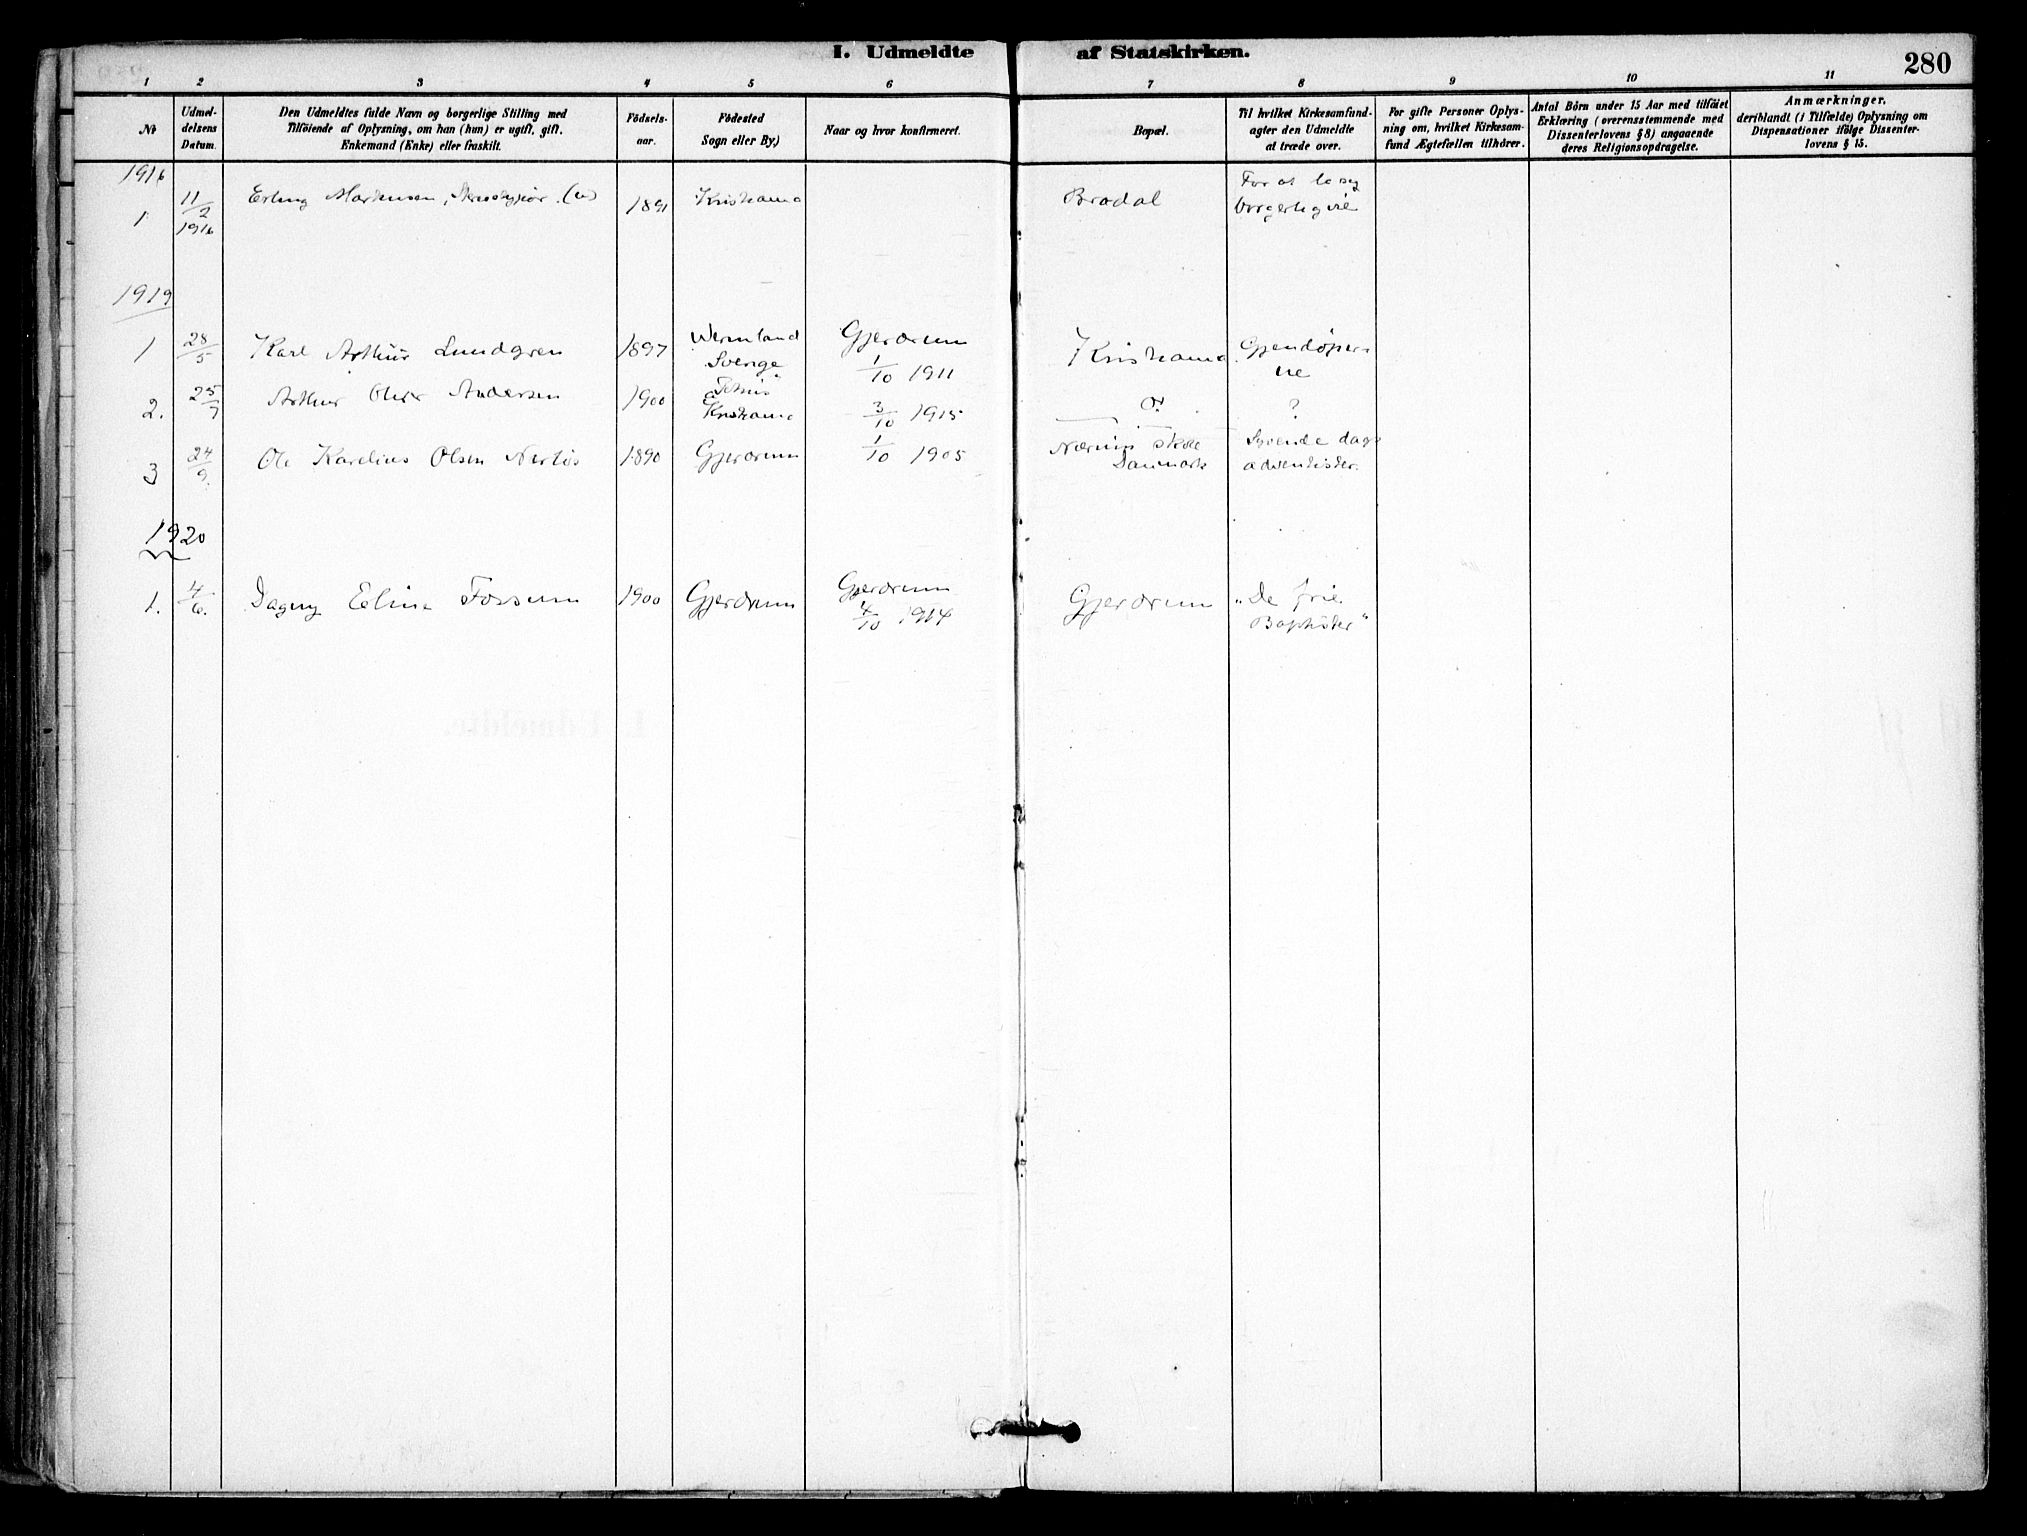 I. Udmeldte af Statskirken.
280
1 2 3 4 5 6 7 8 9 10 11
№
Udmel-
delsens
Datum.
Den Udmeldtes fulde Navn og borgerlige Stilling med
Tilföiende af Oplysning, om han (hun) er ugift, gift.
Enkemand (Enke) eller fraskilt.
Födsels-
aar.
Födested
Sogn eller By.)
Naar og hvor konfirmeret.
Bopæl.
Til hvilket Kirkesamfund-
agter den Udmeldte
at træde over.
For gifte Personer Oplys-
ning om, hvilket Kirkesam-
fund Ægtefællen tilhörer.
Antal Börn under 15 Aar med tilföiet
Erklæring (overensstemmende med
Dissenterlovens § 8) angaaende
deres Religionsopdragelse.
Anmærkninger,
deriblandt (i Tilfælde) Oplysning om
Dispensationer ifölge Dissenter-
lovens § 15.
1916
1 11/2 1916 Erling Martinsen, (u) 1891 Kristiania Brådal For at la seg
borgerlig vie
1919
1 28/5 Karl Arthur Lundgren 1897 Wermland
Sverige
Gjerdrum
1/10 1911
Kristiania Gjendøper-
ne
2. 25/7 Arthur Andersen 1900
Kristiania
3/10 1915
?
3 24/9. Ole Karelius Olsen 1890 Gjerdrum 1/10 1905 Nærum skole
Danmark
Syvende dags
adventister.
1920
1. 4/6. Dagny Eline Fossum 1900 Gjerdrum Gjerdrum
4/10 1914
Gjerdrum "De frie
Baptister"